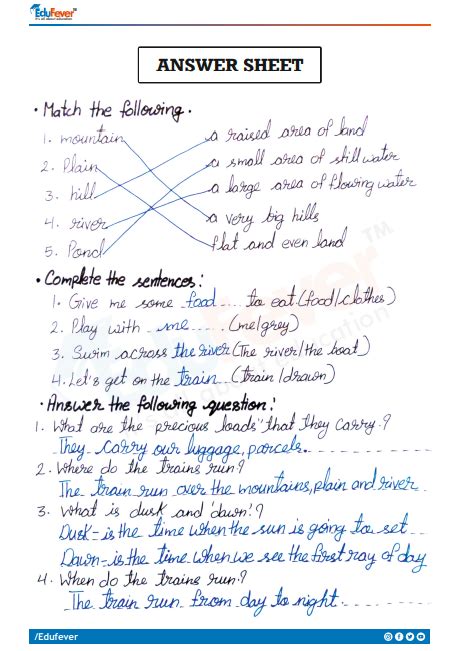 EduFever
It's all about education
ANSWER SHEET
• Match the following.
1. mountain a raised area of land
2. Plain a small area of still water
3. hill a large area of flowing water
4. river a very big hills
5. Pond flat and even land
• Complete the sentences:
1. Give me some food .... to eat (food/clothes)
2. Play with .. me .... (me/grey)
3. Swim across the river (The river/the boat)
4. Let's get on the train .... (train/drawn)
• Answer the following question:
1. What are the precious loads "that they carry?
They carry our luggage, parcels.
2. Where do the trains run?
The train run over the mountains, plain and river
3. What is dusk and 'dawn'?
Dusk - is the time when the sun is going to set
Dawn - is the time when we see the first ray of day
4. When do the trains run?
The train run from day to night.
/Edufever